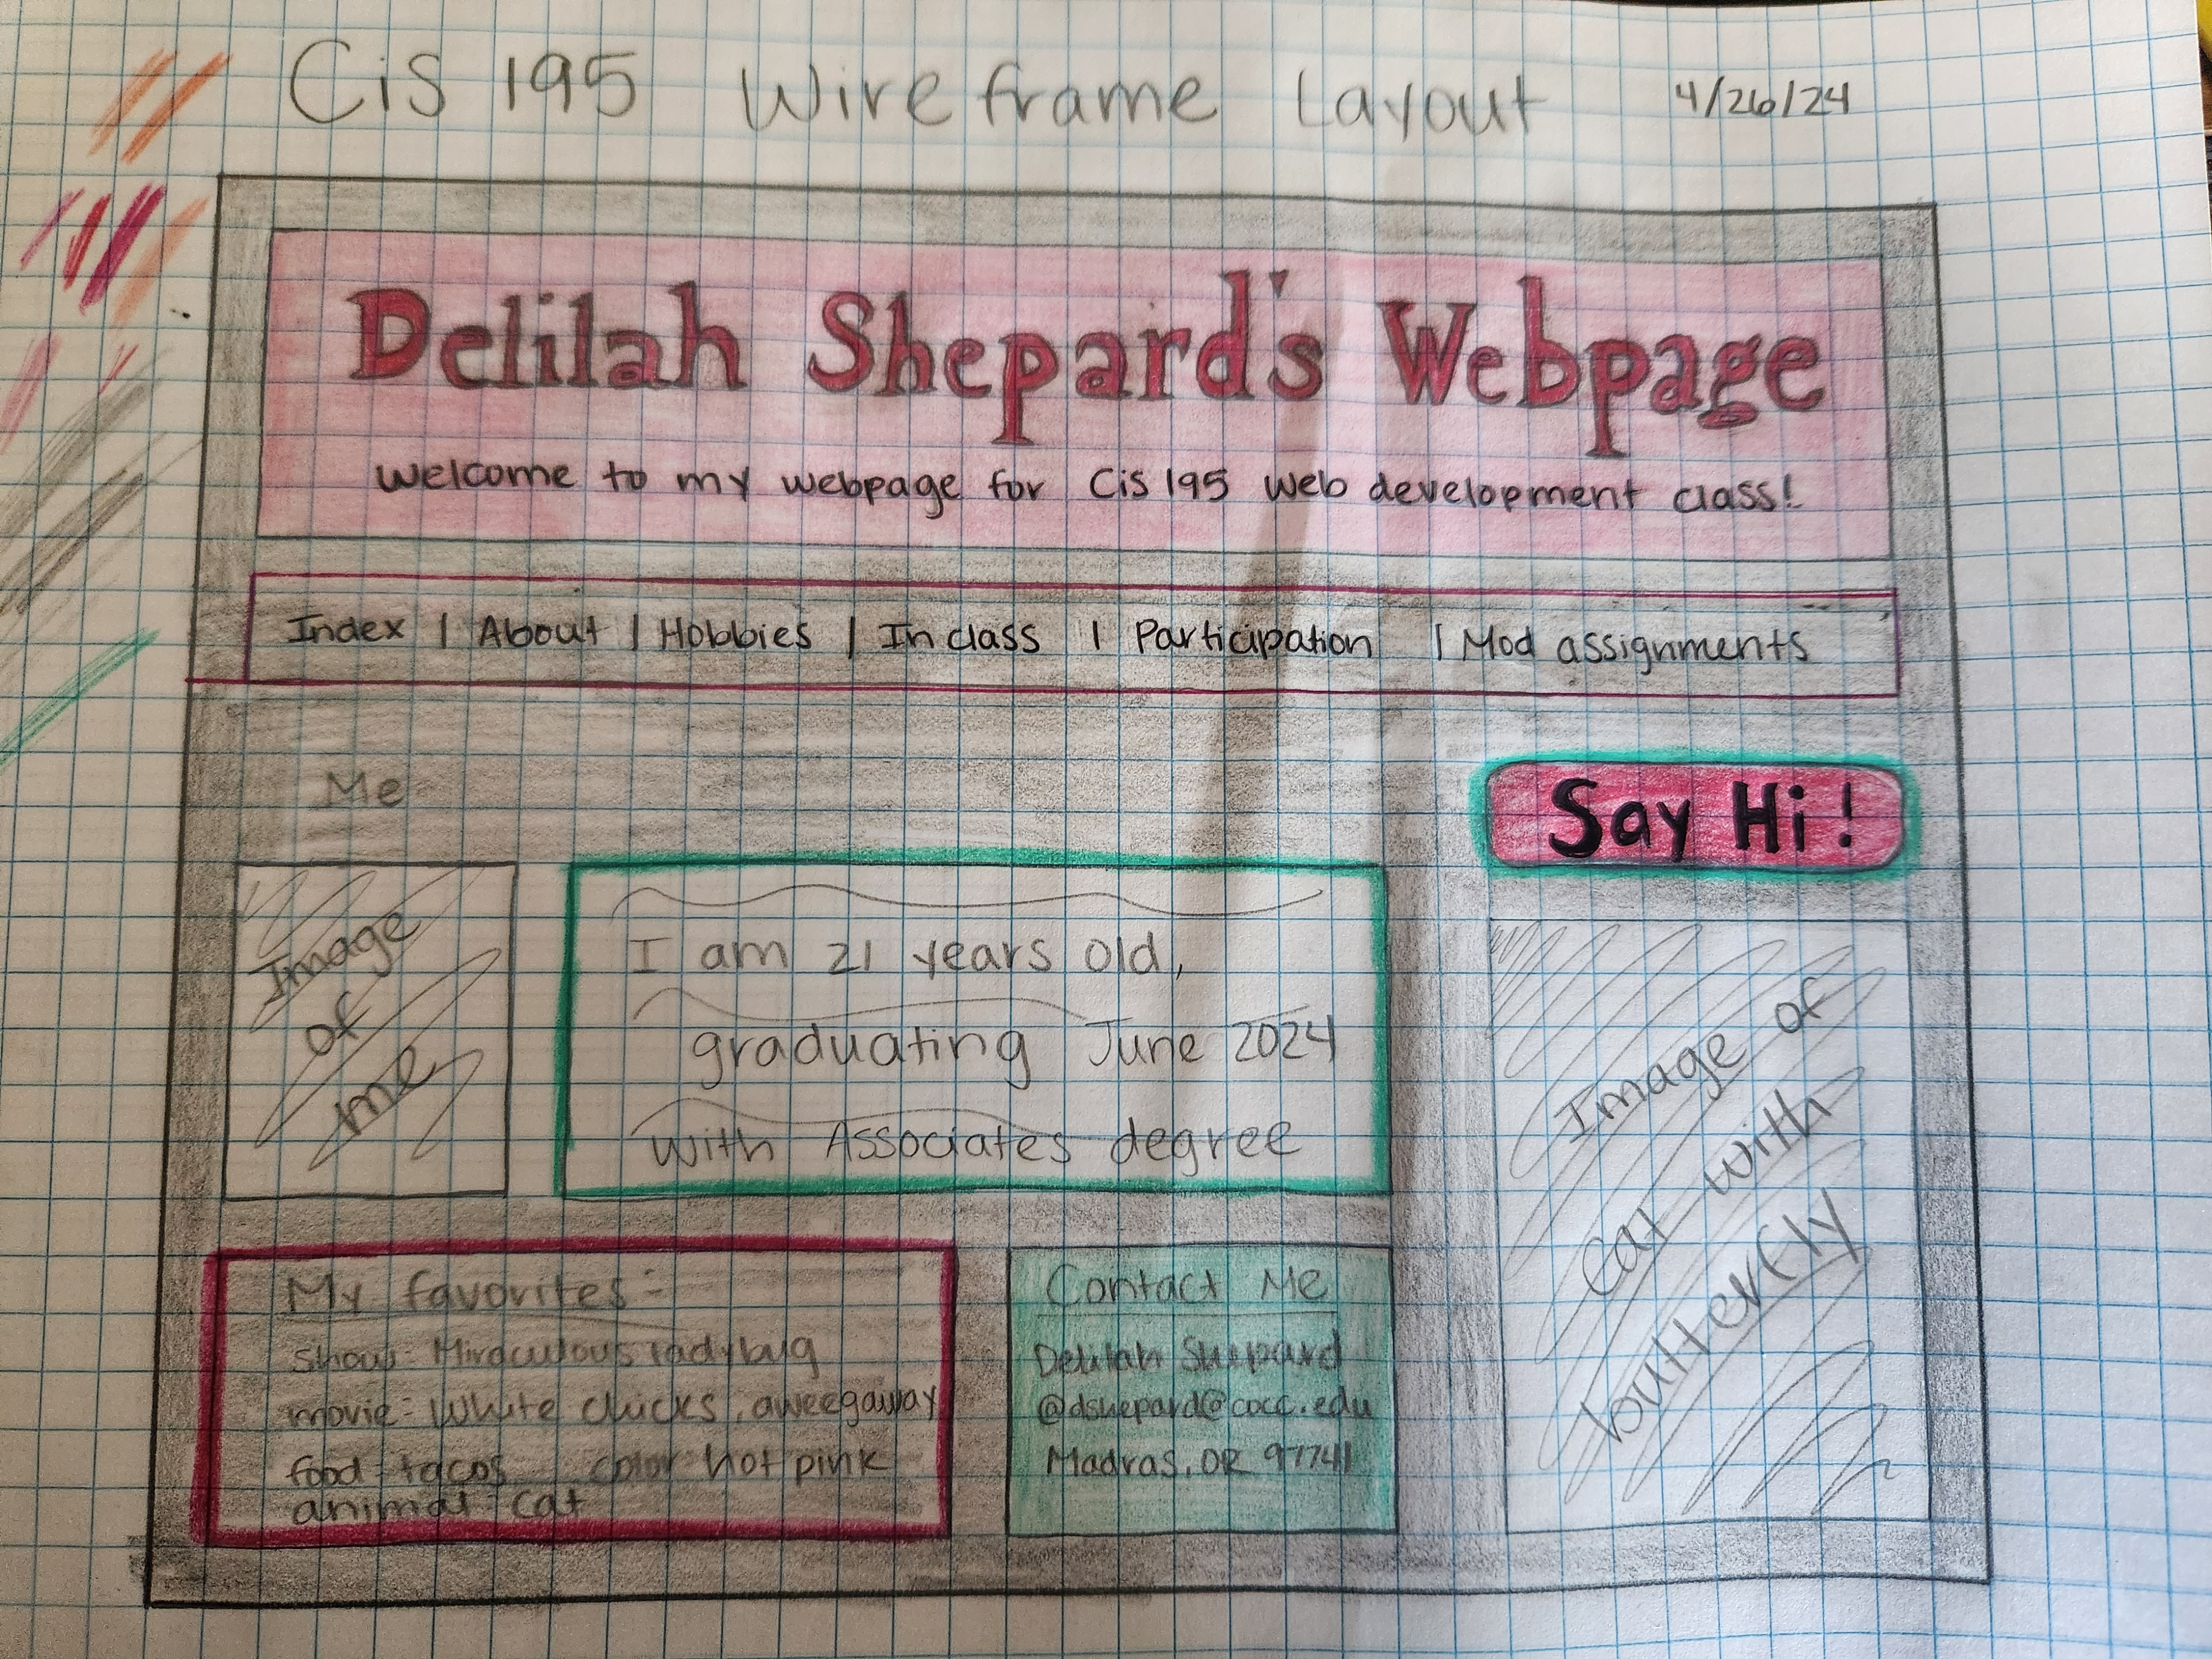 Cis 195 Wireframe Layout 4/26/24
Delilah Shepard's Webpage
Welcome to my webpage for Cis 195 web development class!
Index | About | Hobbies | In class | Participation | Mod assignments
Me
Say Hi!
Image
of
me
I am 21 years old,
graduating June 2024
with Associates degree
Image of
Cat with
butterfly
My favorites:
show: Miraculous ladybug
movie: White chicks, aweegaway
food: tacos color hot pink
animal: cat
Contact Me
Delilah Shepard
@dshepard@cocc.edu
Madras, OR 97741